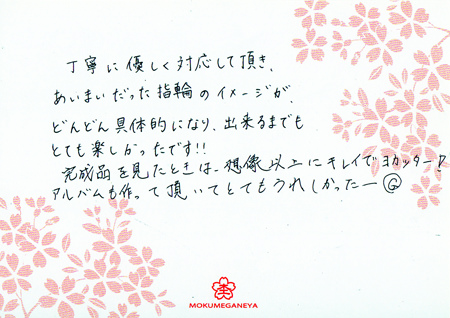 丁寧に優しく対応して頂き、
あいまいだった指輪のイメージが、
どんどん具体的になり、出来るまでも
とても楽しかったです!!
完成品を見たときは、想像以上にキレイでヨカッター!
アルバムも作って頂いてとてもうれしかったーⒼ
MOKUMEGANEYA